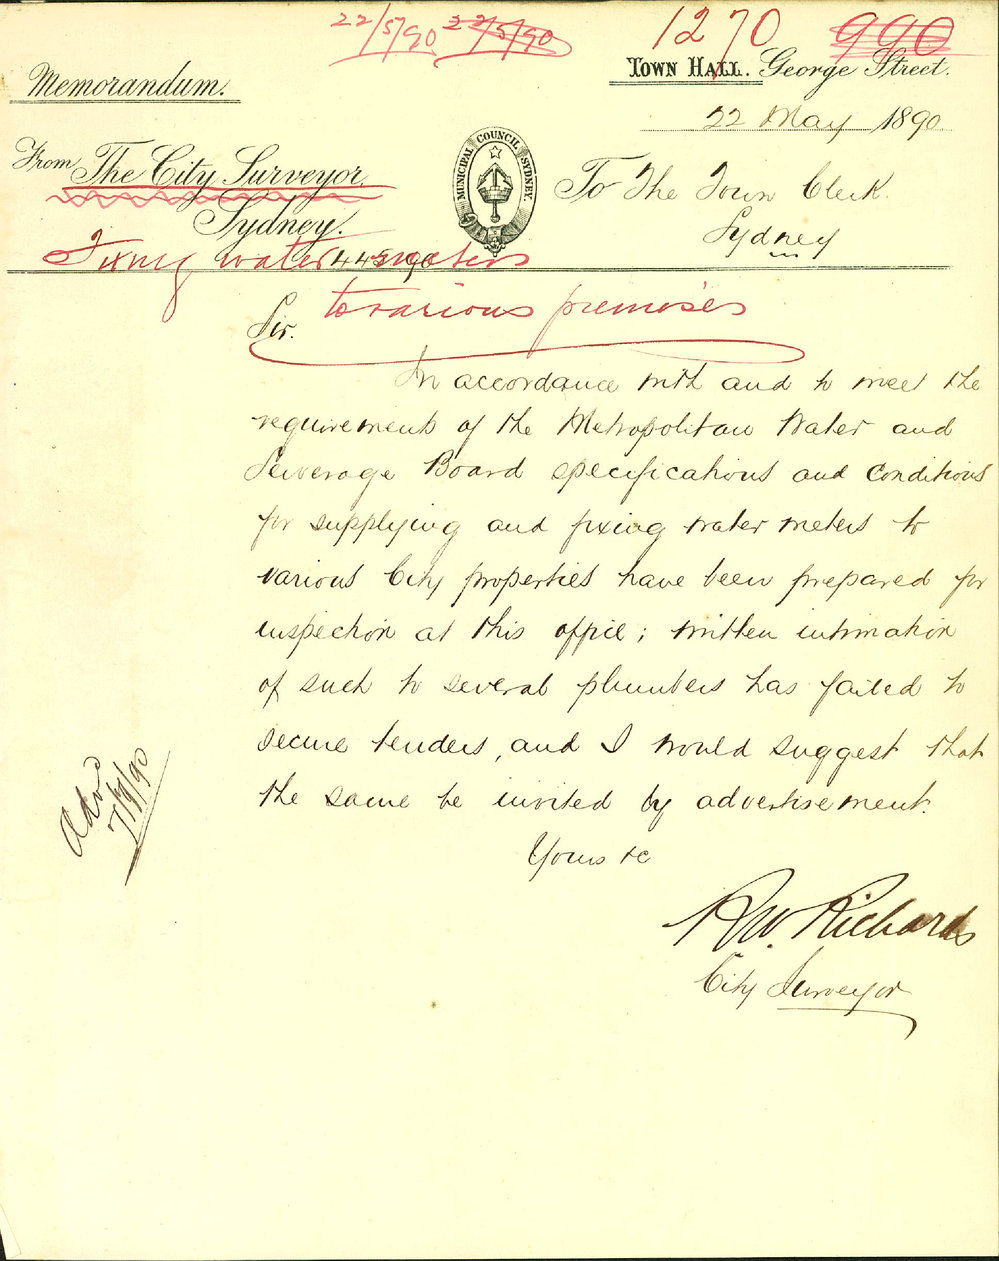 22/5/90 22/5/90 1270 990
Memorandum. Town Hall. George Street.
22 May 1890
From The City Surveyor,
Sydney.
MUNICIPAL COUNCIL SYDNEY.
To The Town Clerk.
Sydney
Fixing water meters
to various premises
Sir.
In accordance with and to meet the
requirements of the Metropolitan Water and
Sewerage Board specifications and conditions
for supplying and fixing water meters to
various City properties have been prepared for
inspection at this office; written intimation
of such to several plumbers has failed to
secure tenders, and I would suggest that
the same be invited by advertisement.
Yours &c
R W. Richards
City Surveyor